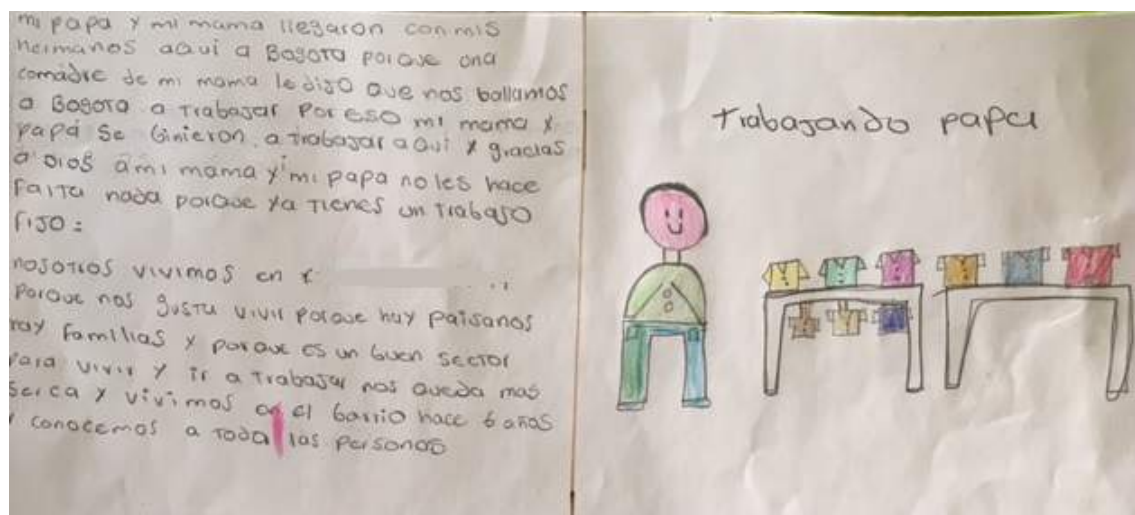 mi papa y mi mama llegaron con mis
hermanos aqui a Bogota porque una
comadre de mi mama le dijo que nos ballamos
a Bogota a Trabajar Por eso mi mama y
papá se binieron a trabajar aqui y gracias
a Dios a mi mama y mi papa no les hace
falta nada porque ya tienes un trabajo
fijo:
nosotros vivimos en
Porque nos gusta vivir porque hay paisanos
hay familias y porque es un buen sector
para vivir y ir a trabajar nos queda mas
serca y vivimos en el barrio hace 6 años
y conocemos a toda las personas
trabajando papa